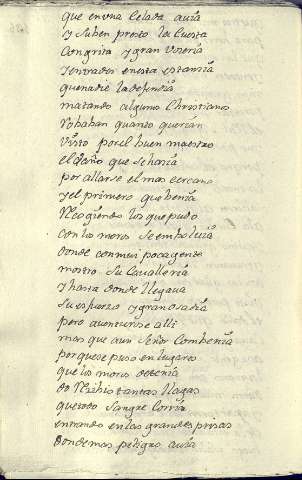 que en una Celada auia
y suben presto la Cuesta
Con grita y gran voceria
y entrados en esta estancia
que nadie la defendia
matando algunos Christianos
Robaban quanto querian
Visto por el buen maestro
el daño que se haria
por allarse el mas cercano
y el primero que heria
Recogiendo los que pudo
con los moros se emboluia
donde con muy poca gente
mostro su Caualleria
y hasta donde llegaua
su esfuerzo y gran osadia
pero auenturose alli
mas que a un Señor Combenia
porque se puso en lugares
que los moros detenia
do Recibio tantas llagas
que todo sangre Corria
entrando en las grandes prisas
donde mas peligro auia